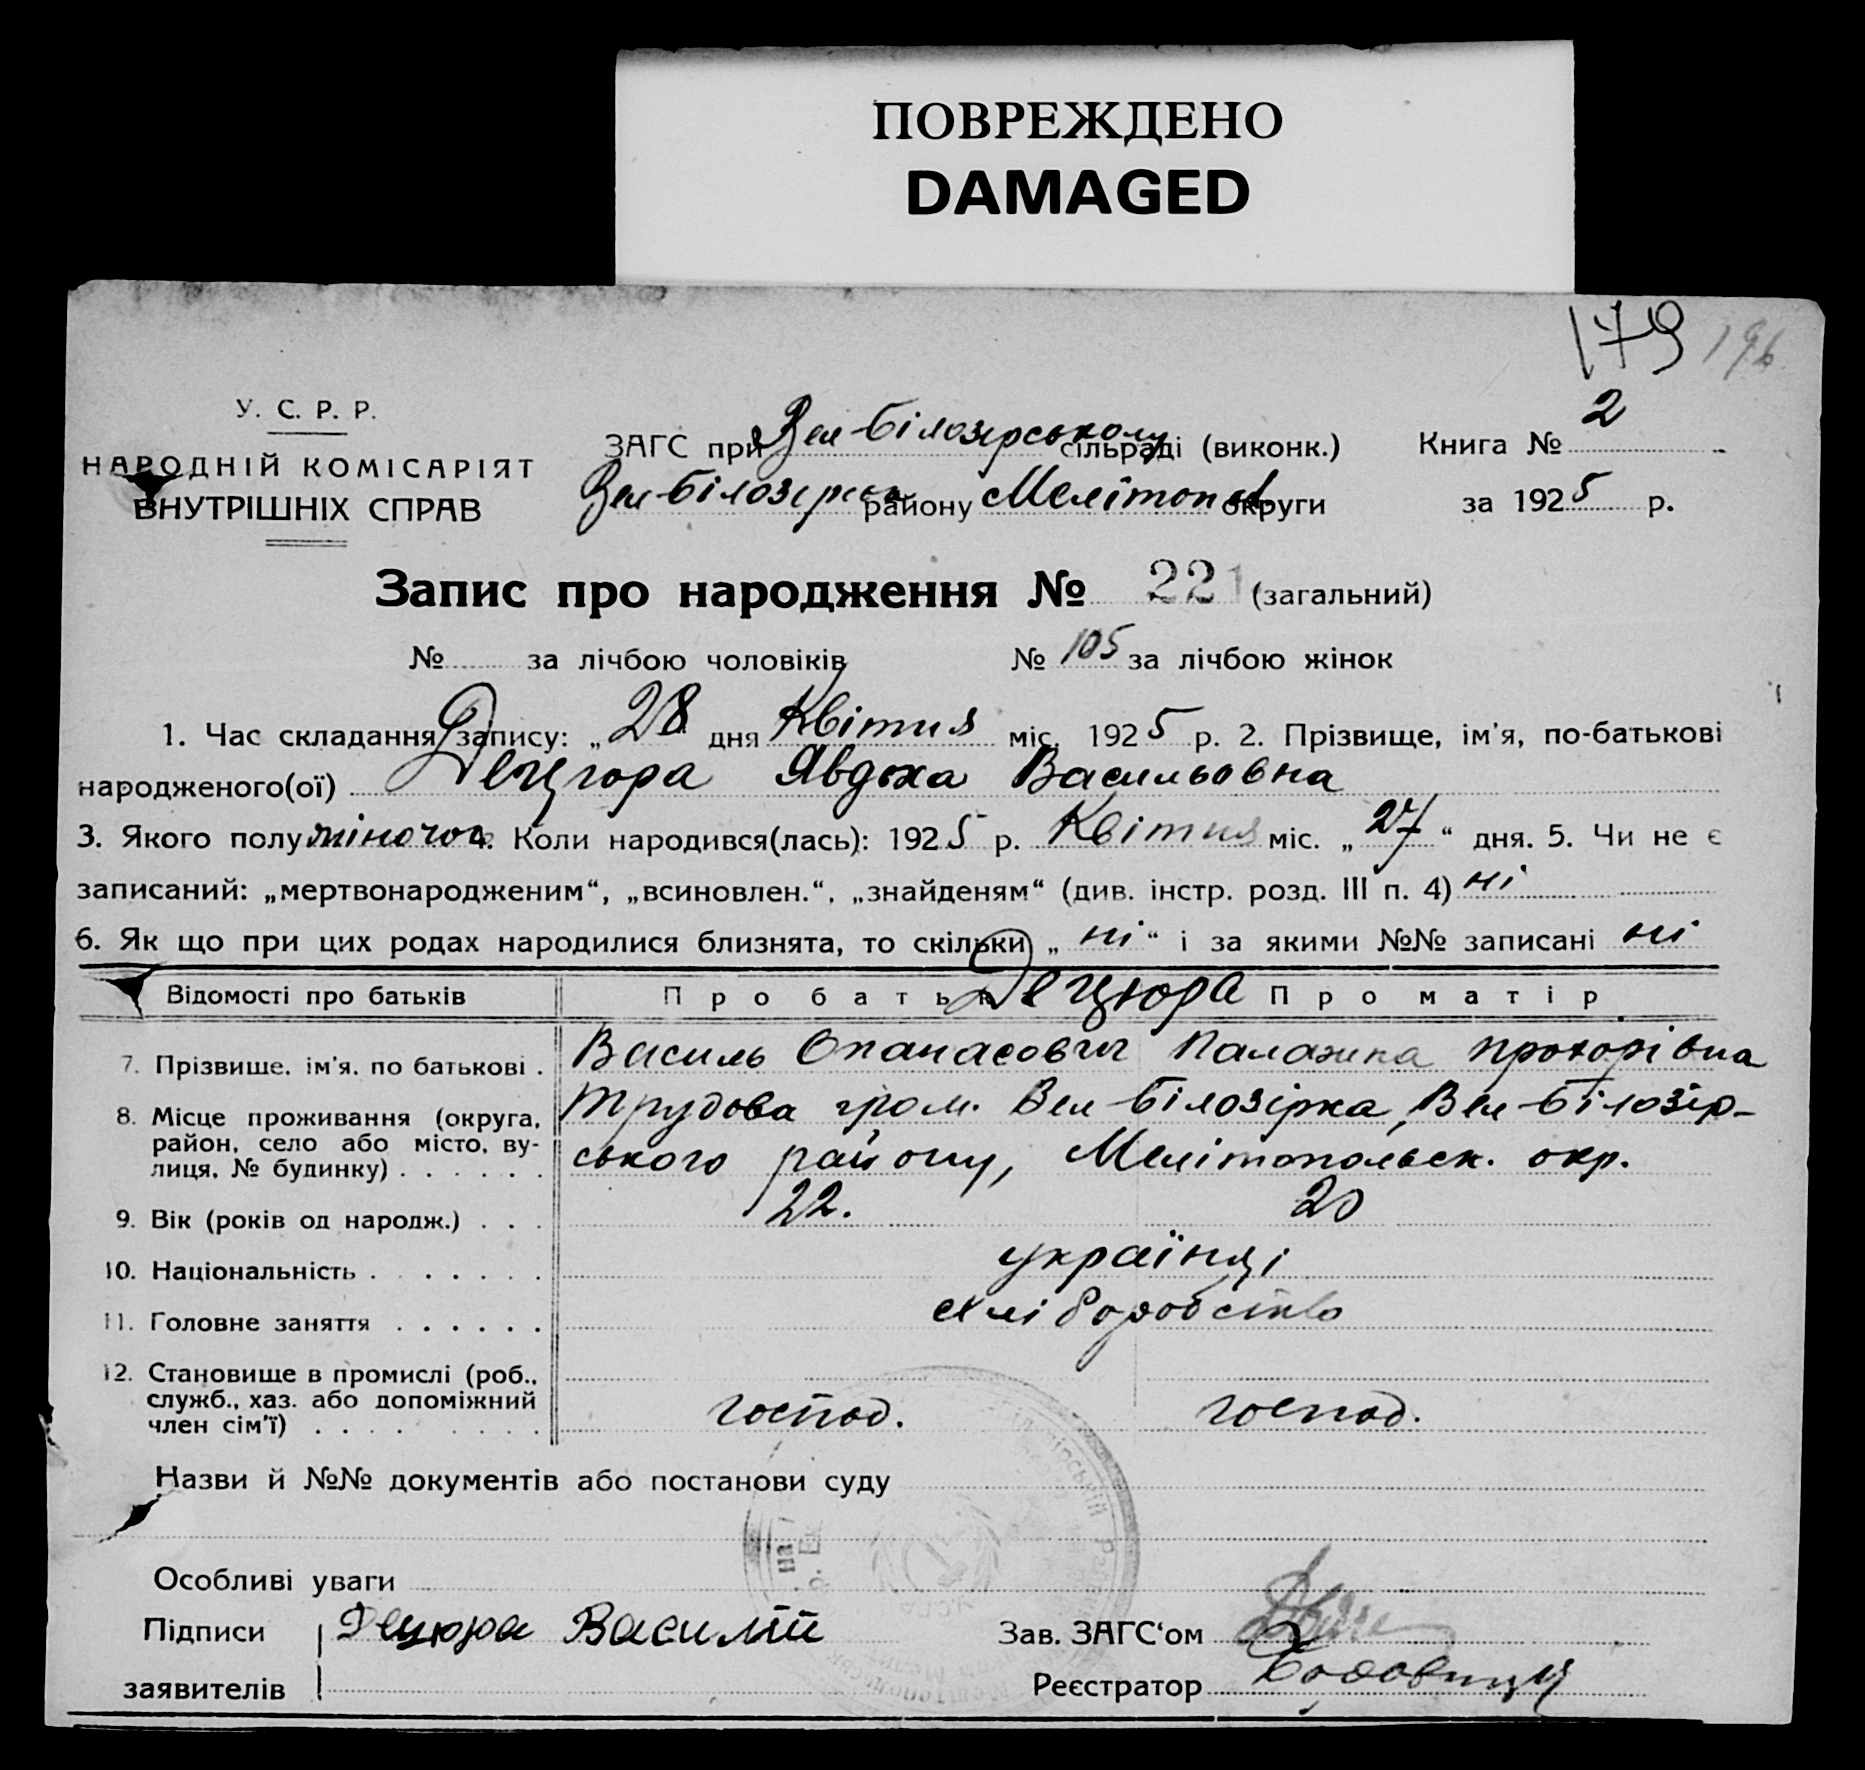 ПОВРЕЖДЕНО
DAMAGED
179 196
У. С. Р. Р.
НАРОДНІЙ КОМІСАРІЯТ
ВНУТРІШНІХ СПРАВ
ЗАГС при Вел-Білозірському сільраді (виконк.)
Вел-Білозірськ району Мелітоп округи
Книга № 2
за 1925 р.
Запис про народження № 221 (загальний)
№ за лічбою чоловіків № 105 за лічбою жінок
1. Час складання запису: „28" дня Квітня міс. 1925 р. 2. Прізвище, ім'я, по-батькові
народженого(ої) Децюра Явдоха Васильовна
3. Якого полу жіночог 4. Коли народився(лась): 1925 р. Квітня міс. „27“ дня. 5. Чи не є
записаний: „мертвонародженим“, „всиновлен.“, „знайденям“ (див. інстр. розд. III п. 4) ні
6. Як що при цих родах народилися близнята, то скільки „ні“ і за якими №№ записані ні
Відомості про батьків Про батька Децюра Про матір
7. Прізвище, ім'я, по батькові . Василь Опанасович Палажка Прохорівна
8. Місце проживання (округа, район, село або місто, вулиця, № будинку) . . . . . . Трудова гром. Вел-Білозірка, Вел-Білозір-
ського району, Мелітопольськ. окр.
9. Вік (років од народж.) . . . 22. 20
10. Національність . . . . . . . українці
11. Головне заняття . . . . . . хліборобство
12. Становище в промислі (роб.,
служб., хаз. або допоміжний
член сім'ї) . . . . . . . . . господ. господ.
Назви й №№ документів або постанови суду
Особливі уваги
Підписи Децюра Василій
заявителів
Зав. ЗАГС‘ом
Реєстратор